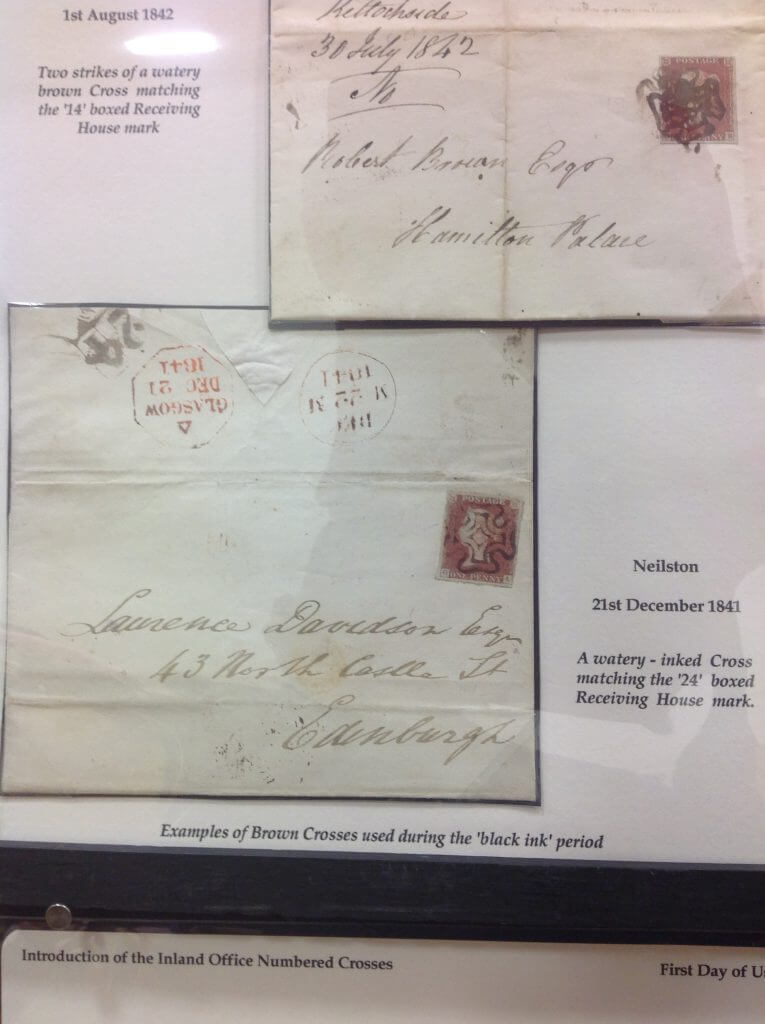 1st August 1842
Two strikes of a watery
brown Cross matching
the '14' boxed Receiving
House mark
30 July 1842
No
POSTAGE
Robert Brown Esqr
Hamilton Palace
1841
DEC 21
GLASGOW
1841
M 22 M
DEC
POSTAGE
ONE PENNY
Laurence Davidson Esqr
43 North Castle St
Edinburgh
Neilston
21st December 1841
A watery - inked Cross
matching the '24' boxed
Receiving House mark.
Examples of Brown Crosses used during the 'black ink' period
Introduction of the Inland Office Numbered Crosses
First Day of U